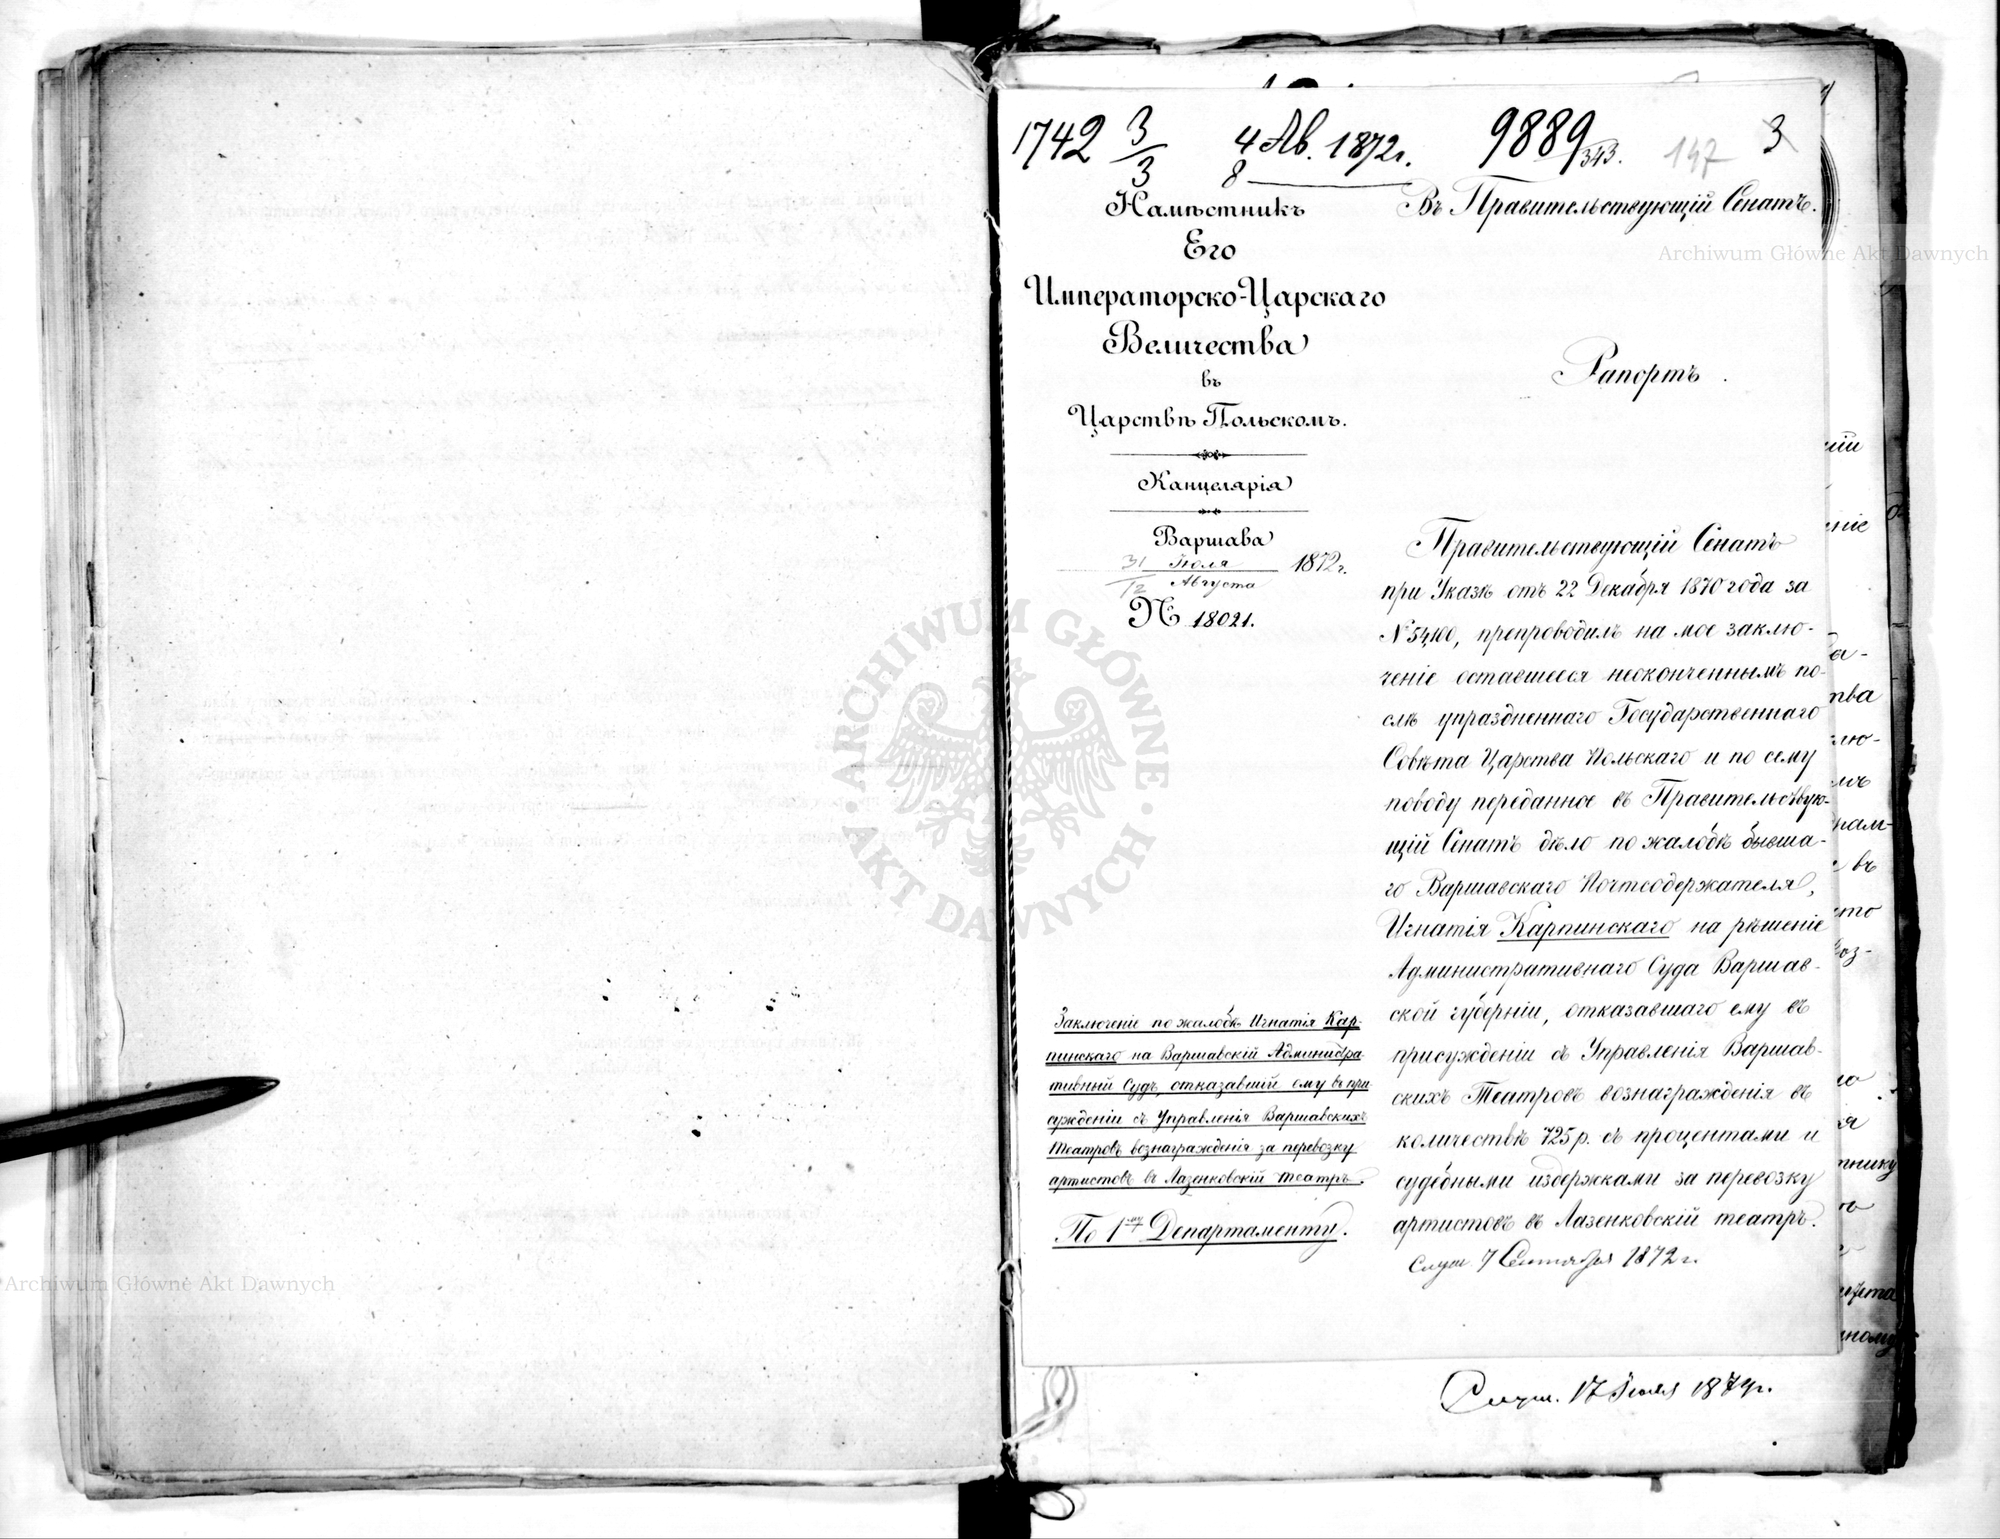 1742 3/3 4 Ав. 1872г. 9889/343. 147 3
8
Намѣстникъ
Его
Императорско-Царскаго
Величества
въ
Царствѣ Польскомъ.
Канцелярія
Варшава
31 Іюля
12 Августа 1872г.
№ 18021.
Заключеніе по жалобѣ Игнатія Кар-
пинскаго на Варшавскій Администра-
тивный Судъ, отказавшій ему въ при-
сужденіи съ Управленія Варшавскихъ
Театровъ вознагражденія за перевозку
артистовъ въ Лазенковскій театръ.
По 1му Департаменту.
Въ Правительствующій Сенатъ.
Рапортъ.
Правительствующій Сенатъ
при Указѣ отъ 22 Декабря 1870 года за
№ 54,100, препроводилъ на мое заклю-
ченіе оставшееся неоконченнымъ по-
слѣ упраздненнаго Государственнаго
Совѣта Царства Польскаго и по сему
поводу переданное въ Правительствую-
щій Сенатъ дѣло по жалобѣ бывша-
го Варшавскаго Почтсодержателя,
Игнатія Карпинскаго на рѣшеніе
Административнаго Суда Варшав-
ской губерніи, отказавшаго ему въ
присужденіи съ Управленія Варшав-
скихъ Театровъ вознагражденія въ
количествѣ 725 р. съ процентами и
судебными издержками за перевозку
артистовъ въ Лазенковскій театръ.
Слуш. 7 Сентября 1872 г.
Слуш. 17 1874г.
Archiwum Główne Akt Dawnych
ARCHIWUM GŁÓWNE AKT DAWNYCH
Archiwum Główne Akt Dawnych